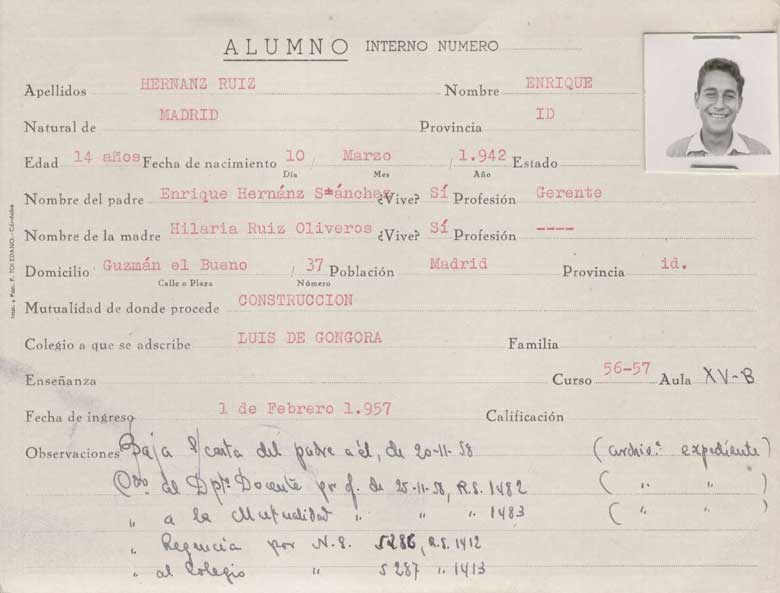 ALUMNO INTERNO NUMERO
Apellidos HERNANZ RUIZ Nombre ENRIQUE
Natural de MADRID Provincia ID
Edad 14 años Fecha de nacimiento 10 / Marzo / 1.942 Estado
Día Mes Año
Nombre del padre Enrique Hernánz Sánchez ¿Vive? Sí Profesión Gerente
Nombre de la madre Hilaria Ruiz Oliveros ¿Vive? Sí Profesión ----
Domicilio Guzmán el Bueno / 37 Población Madrid Provincia id.
Calle o Plaza Número
Mutualidad de donde procede CONSTRUCCION
Colegio a que se adscribe LUIS DE GONGORA Familia
Enseñanza Curso 56-57 Aula XV-B
Fecha de ingreso 1 de Febrero 1.957 Calificación
Observaciones Baja s/ carta del padre a él, de 20-11-58 (archiv.º expediente)
al Dptº Docente por of. de 25-11-58, R.S. 1482 ( " " )
" a la Mutualidad " " " 1483 ( " " )
" Regencia por N.S. 5286, R.S. 1412
" al Colegio " 5287 " 1413
Imp. y Pap. F. TOLEDANO.-Córdoba